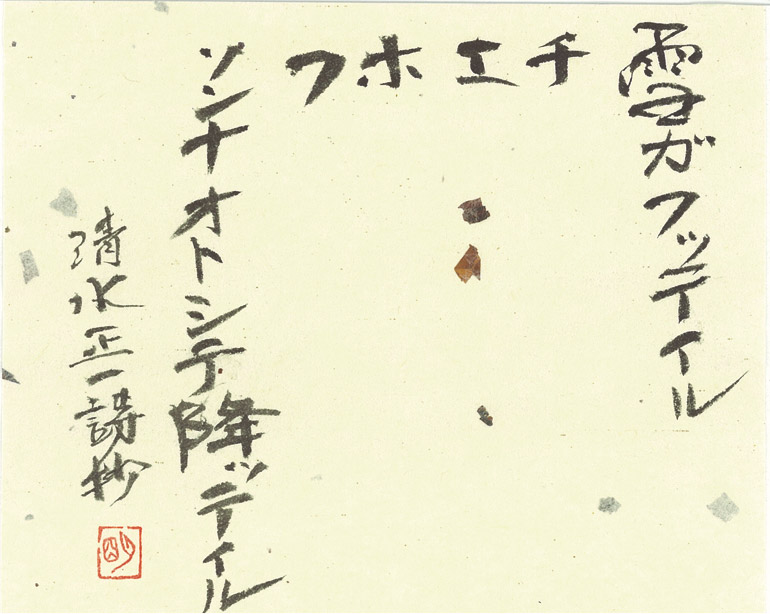 雪ガフッテイル
チエホフ
ソンナオトシテ降ッテイル
清水正一詩抄